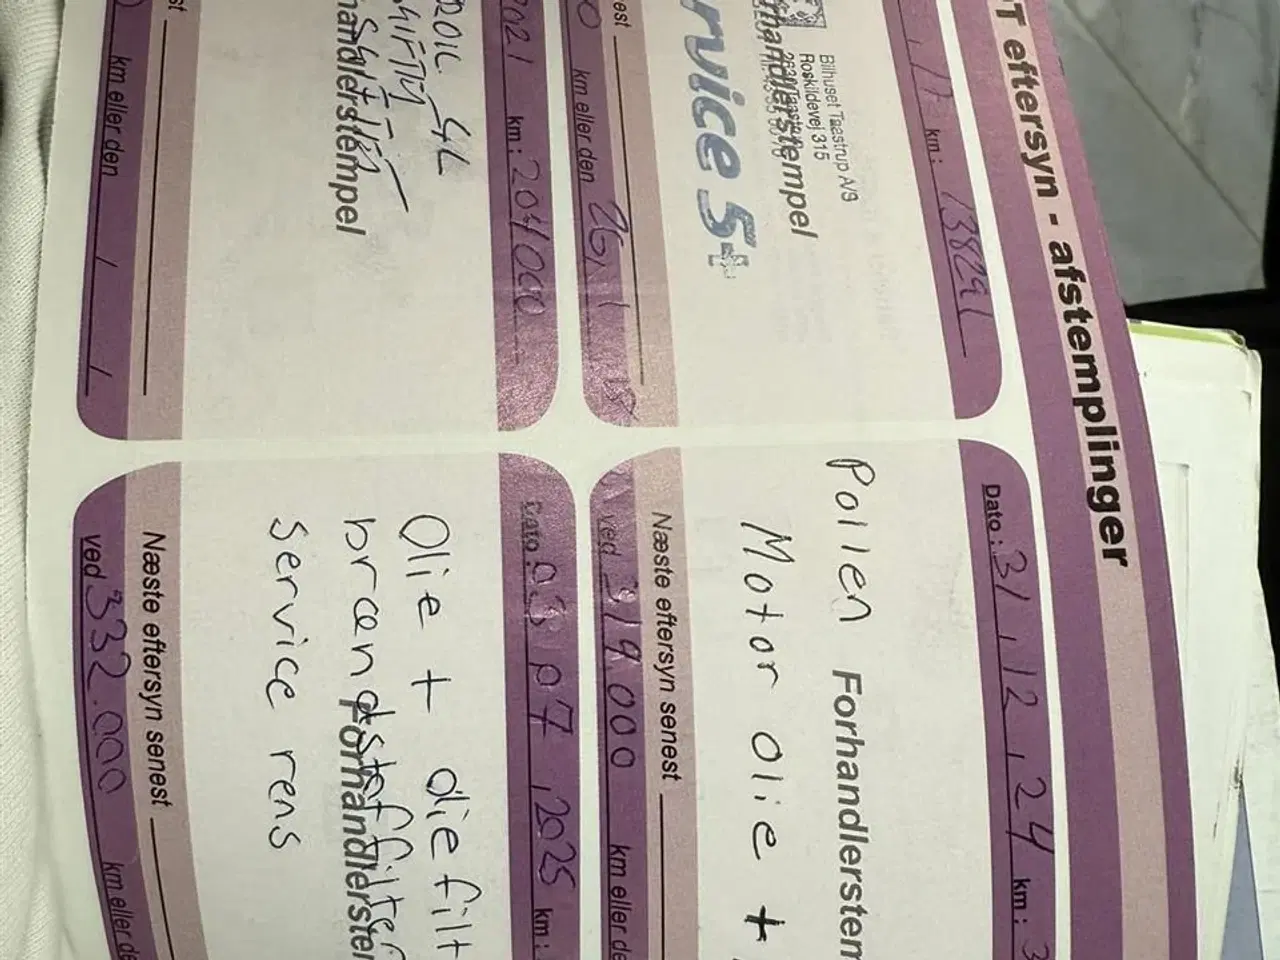 T eftersyn - afstemplinger
17 km: 138291
Bilhuset Taastrup A/S
Roskildevej 315
Forhandlerstempel
rvice 5+
est
km eller den 26 1 18
2021 km: 204000
4L
handlerstempel
st
km eller den / /
Dato: 31, 12, 24 km: 3
Pollen
Forhandlerstem
Motor olie +
Næste eftersyn senest
ved 319000 km eller de
Dato: 03 07, 2025 km:
Olie + oliefilt
brændstoffilter
Forhandlerster
Service rens
Næste eftersyn senest
ved 332.000 km eller de